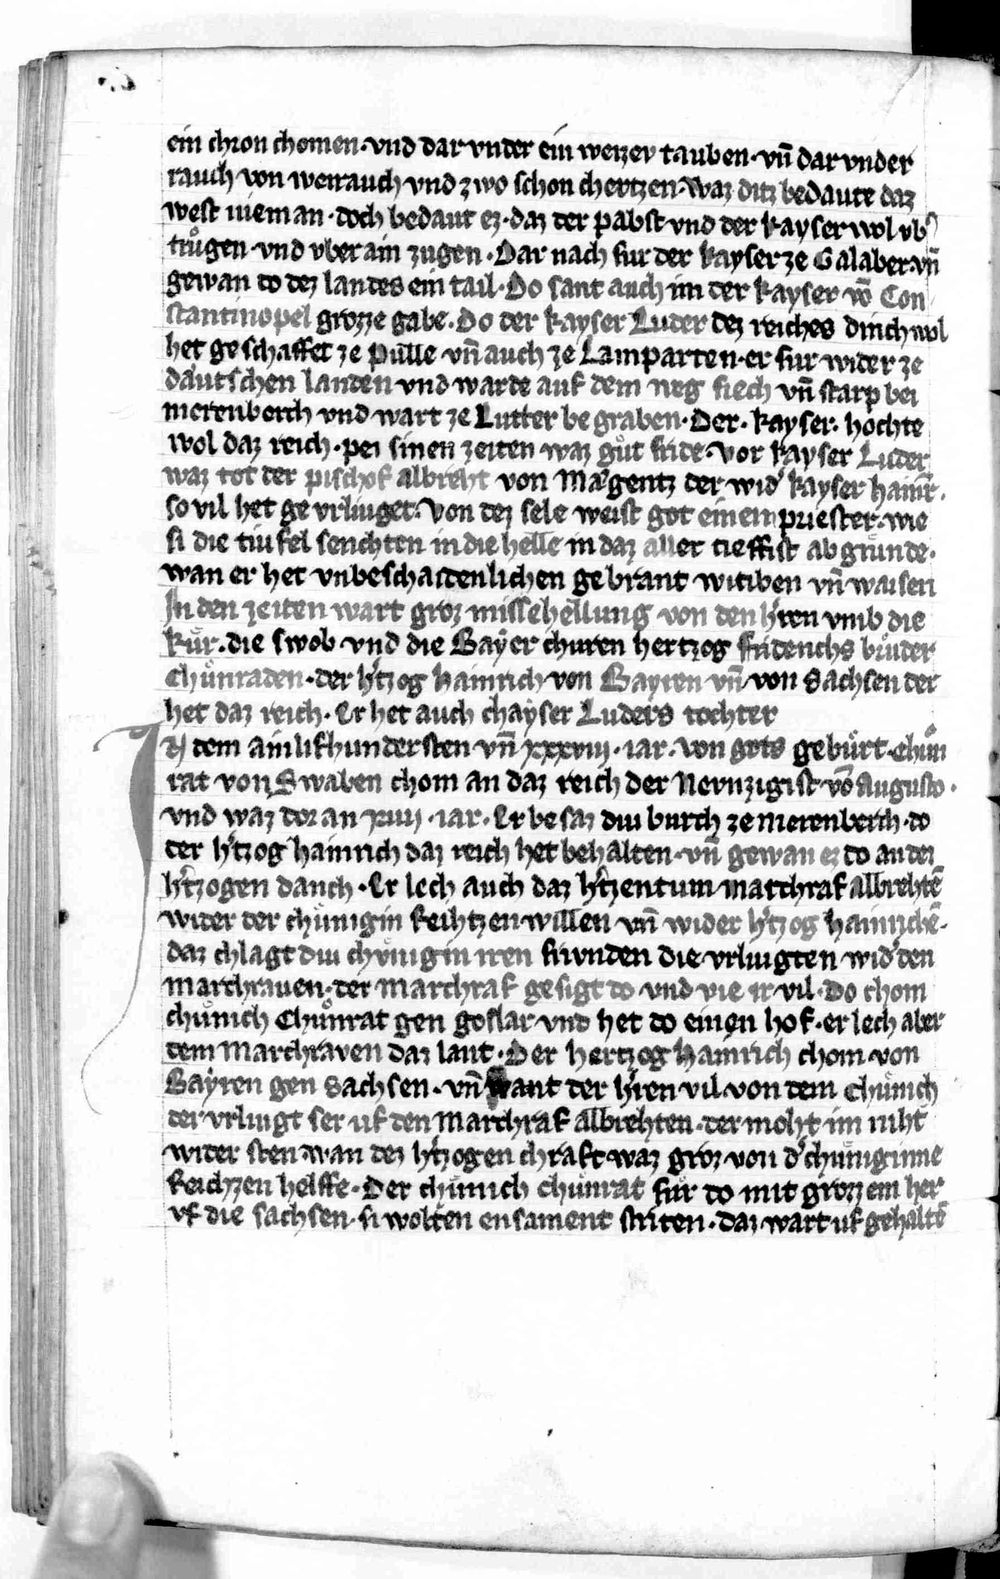 ein chron chomen · vnd dar vnter ein weizzev tauben · vn̄ dar vnder
rauch von weirauch vnd zwo schon chertzen · Waz ditz bedaute daz
west nieman · doch bedaut ez · daz der pabst vnd der kayser wol vb᷑
trůgen · vnd vber ain zugen · Dar nach fur der kayser ze Galaber · vn̄
gewan do dez landes ein tail · Do sant auch im der kayser vō Con
stantinopel grozze gabe · Do der kayser Luder dez reiches dinch wol
het geschaffet ze Pulle vn̄ auch ze Lamparten · er fur wider ze
dautschen landen vnd warde auf dem weg siech vn̄ starp bei
nierenberch vnd wart ze Lutter begraben · Der · kayser · hochte
wol daz reich · pei sinen zeiten waz gůt fride · Vor kayser Luder
waz tot der pischof albreht von Magentz der wid᷑ kayser hainr̄ ·
so vil het gevrliuget · Von dez sele weist got einem priester · wie
si die tiufel senchten in die helle in daz aller tieffist abgrunde ·
wan er het vnbeschaitenlichen gebrant witiben vn̄ waisen
In den zeiten wart groz missehellung von den h᷑ren vmb die
kůr · die swob vnd die Baẏer churen hertzog fridenchs brůder
Chůnraden · der h᷑tzog Hainrich von Bayren vn̄ von Sachsen der
het daz reich · Er het auch chaẏser Luders tochter
In dem ainlifhundersten vn̄ xxxviii · iar · von gots gebůrt · Chůn
rat von Swaben chom an daz reich der Nevnzigist vō Augusto ·
vnd waz dor an xiiii · iar · Er besaz diu burch ze nierenberch · do
der h᷑tzog hainrich daz reich het behalten · vn̄ gewan ez do an dez
h᷑tzogen danch · Er lech auch daz h᷑tzentum marchraf albrehtē
wider der chůnigin Reihtzen willen vn̄ wider h᷑tzog hainrichē ·
daz chlagt diu chvnigin iren frivnden die vrliugten wid᷑ den
marchrauen · der marchraf gesigt do vnd vie ir vil · Do chom
chůnich Chůnrat gen goslar vnd het do einen hof · er lech aber
dem Marchraven daz lant · Der hertzog Hainrich chom von
Baẏren gen Sachsen · vn̄ want der h᷑ren vil von dem Chůnich
der vrliugt ser uf den Marchraf albrehten · der moht im niht
wider sten wan dez h᷑tzogen chraft waz groz von d᷑ chůniginne
Reichzen helffe · Der chůnich chůnrat fůr do mit grozzem her
vf die sachsen · si wolten ensament striten · daz wart uf gehaltē